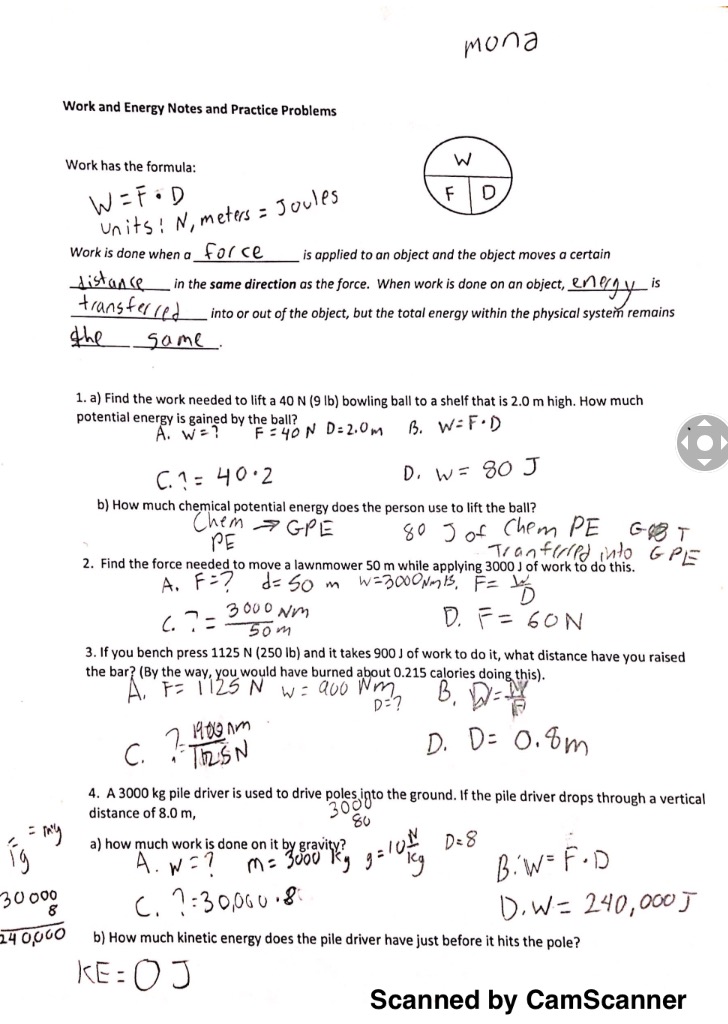 mona
Work and Energy Notes and Practice Problems
Work has the formula:
W
F D
W = F • D
Units: N, meters = Joules
Work is done when a force is applied to an object and the object moves a certain
distance in the same direction as the force. When work is done on an object, energy is
transferred into or out of the object, but the total energy within the physical system remains
the same.
1. a) Find the work needed to lift a 40 N (9 lb) bowling ball to a shelf that is 2.0 m high. How much
potential energy is gained by the ball?
A. W = ? F = 40 N D = 2.0 m B. W = F • D
C. ? = 40 • 2 D. W = 80 J
b) How much chemical potential energy does the person use to lift the ball?
Chem PE → GPE 80 J of Chem PE
into GPE
2. Find the force needed to move a lawnmower 50 m while applying 3000 J of work to do this.
A. F = ? d = 50 m W = 3000 Nm B. F = W/D
C. ? = 3000 Nm / 50 m D. F = 60 N
3. If you bench press 1125 N (250 lb) and it takes 900 J of work to do it, what distance have you raised
the bar? (By the way, you would have burned about 0.215 calories doing this).
A. F = 1125 N W = 900 Nm D = ? B. D = W/F
C. ? = Nm / 1125 N D. D = 0.8 m
4. A 3000 kg pile driver is used to drive poles into the ground. If the pile driver drops through a vertical
distance of 8.0 m,
3000
80
a) how much work is done on it by gravity?
A. W = ? m = 3000 kg g = 10 N/kg D = 8 B. W = F • D
C. ? = 30,000 • 8 D. W = 240,000 J
= mg
30000
8
240,000
b) How much kinetic energy does the pile driver have just before it hits the pole?
KE = 0 J
Scanned by CamScanner